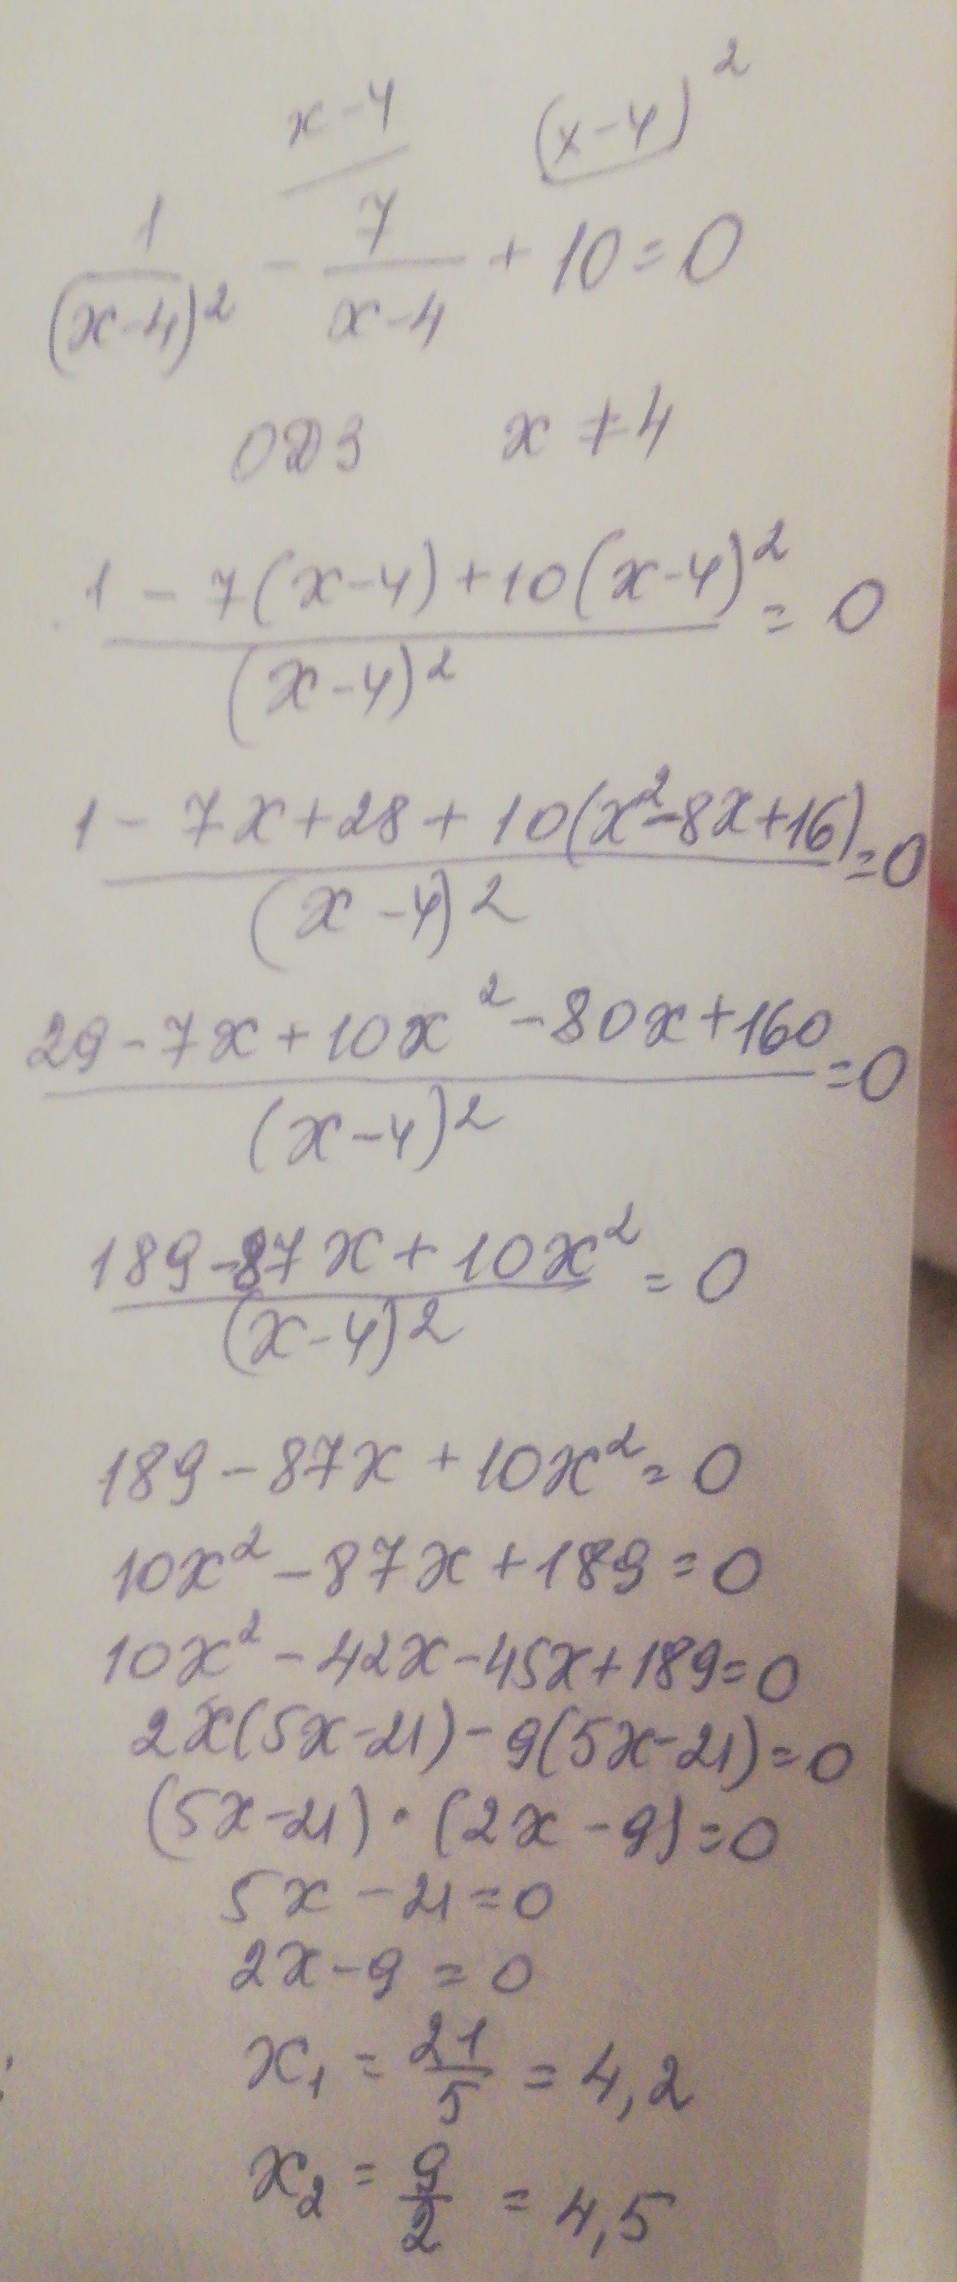 x-4   (x-4)²
1/(x-4)² - 7/(x-4) + 10 = 0
ОДЗ   x ≠ 4
(1 - 7(x-4) + 10(x-4)²)/(x-4)² = 0
(1 - 7x + 28 + 10(x² - 8x + 16))/(x-4)² = 0
(29 - 7x + 10x² - 80x + 160)/(x-4)² = 0
(189 - 87x + 10x²)/(x-4)² = 0
189 - 87x + 10x² = 0
10x² - 87x + 189 = 0
10x² - 42x - 45x + 189 = 0
2x(5x-21) - 9(5x-21) = 0
(5x-21) · (2x-9) = 0
5x - 21 = 0
2x - 9 = 0
x₁ = 21/5 = 4,2
x₂ = 9/2 = 4,5